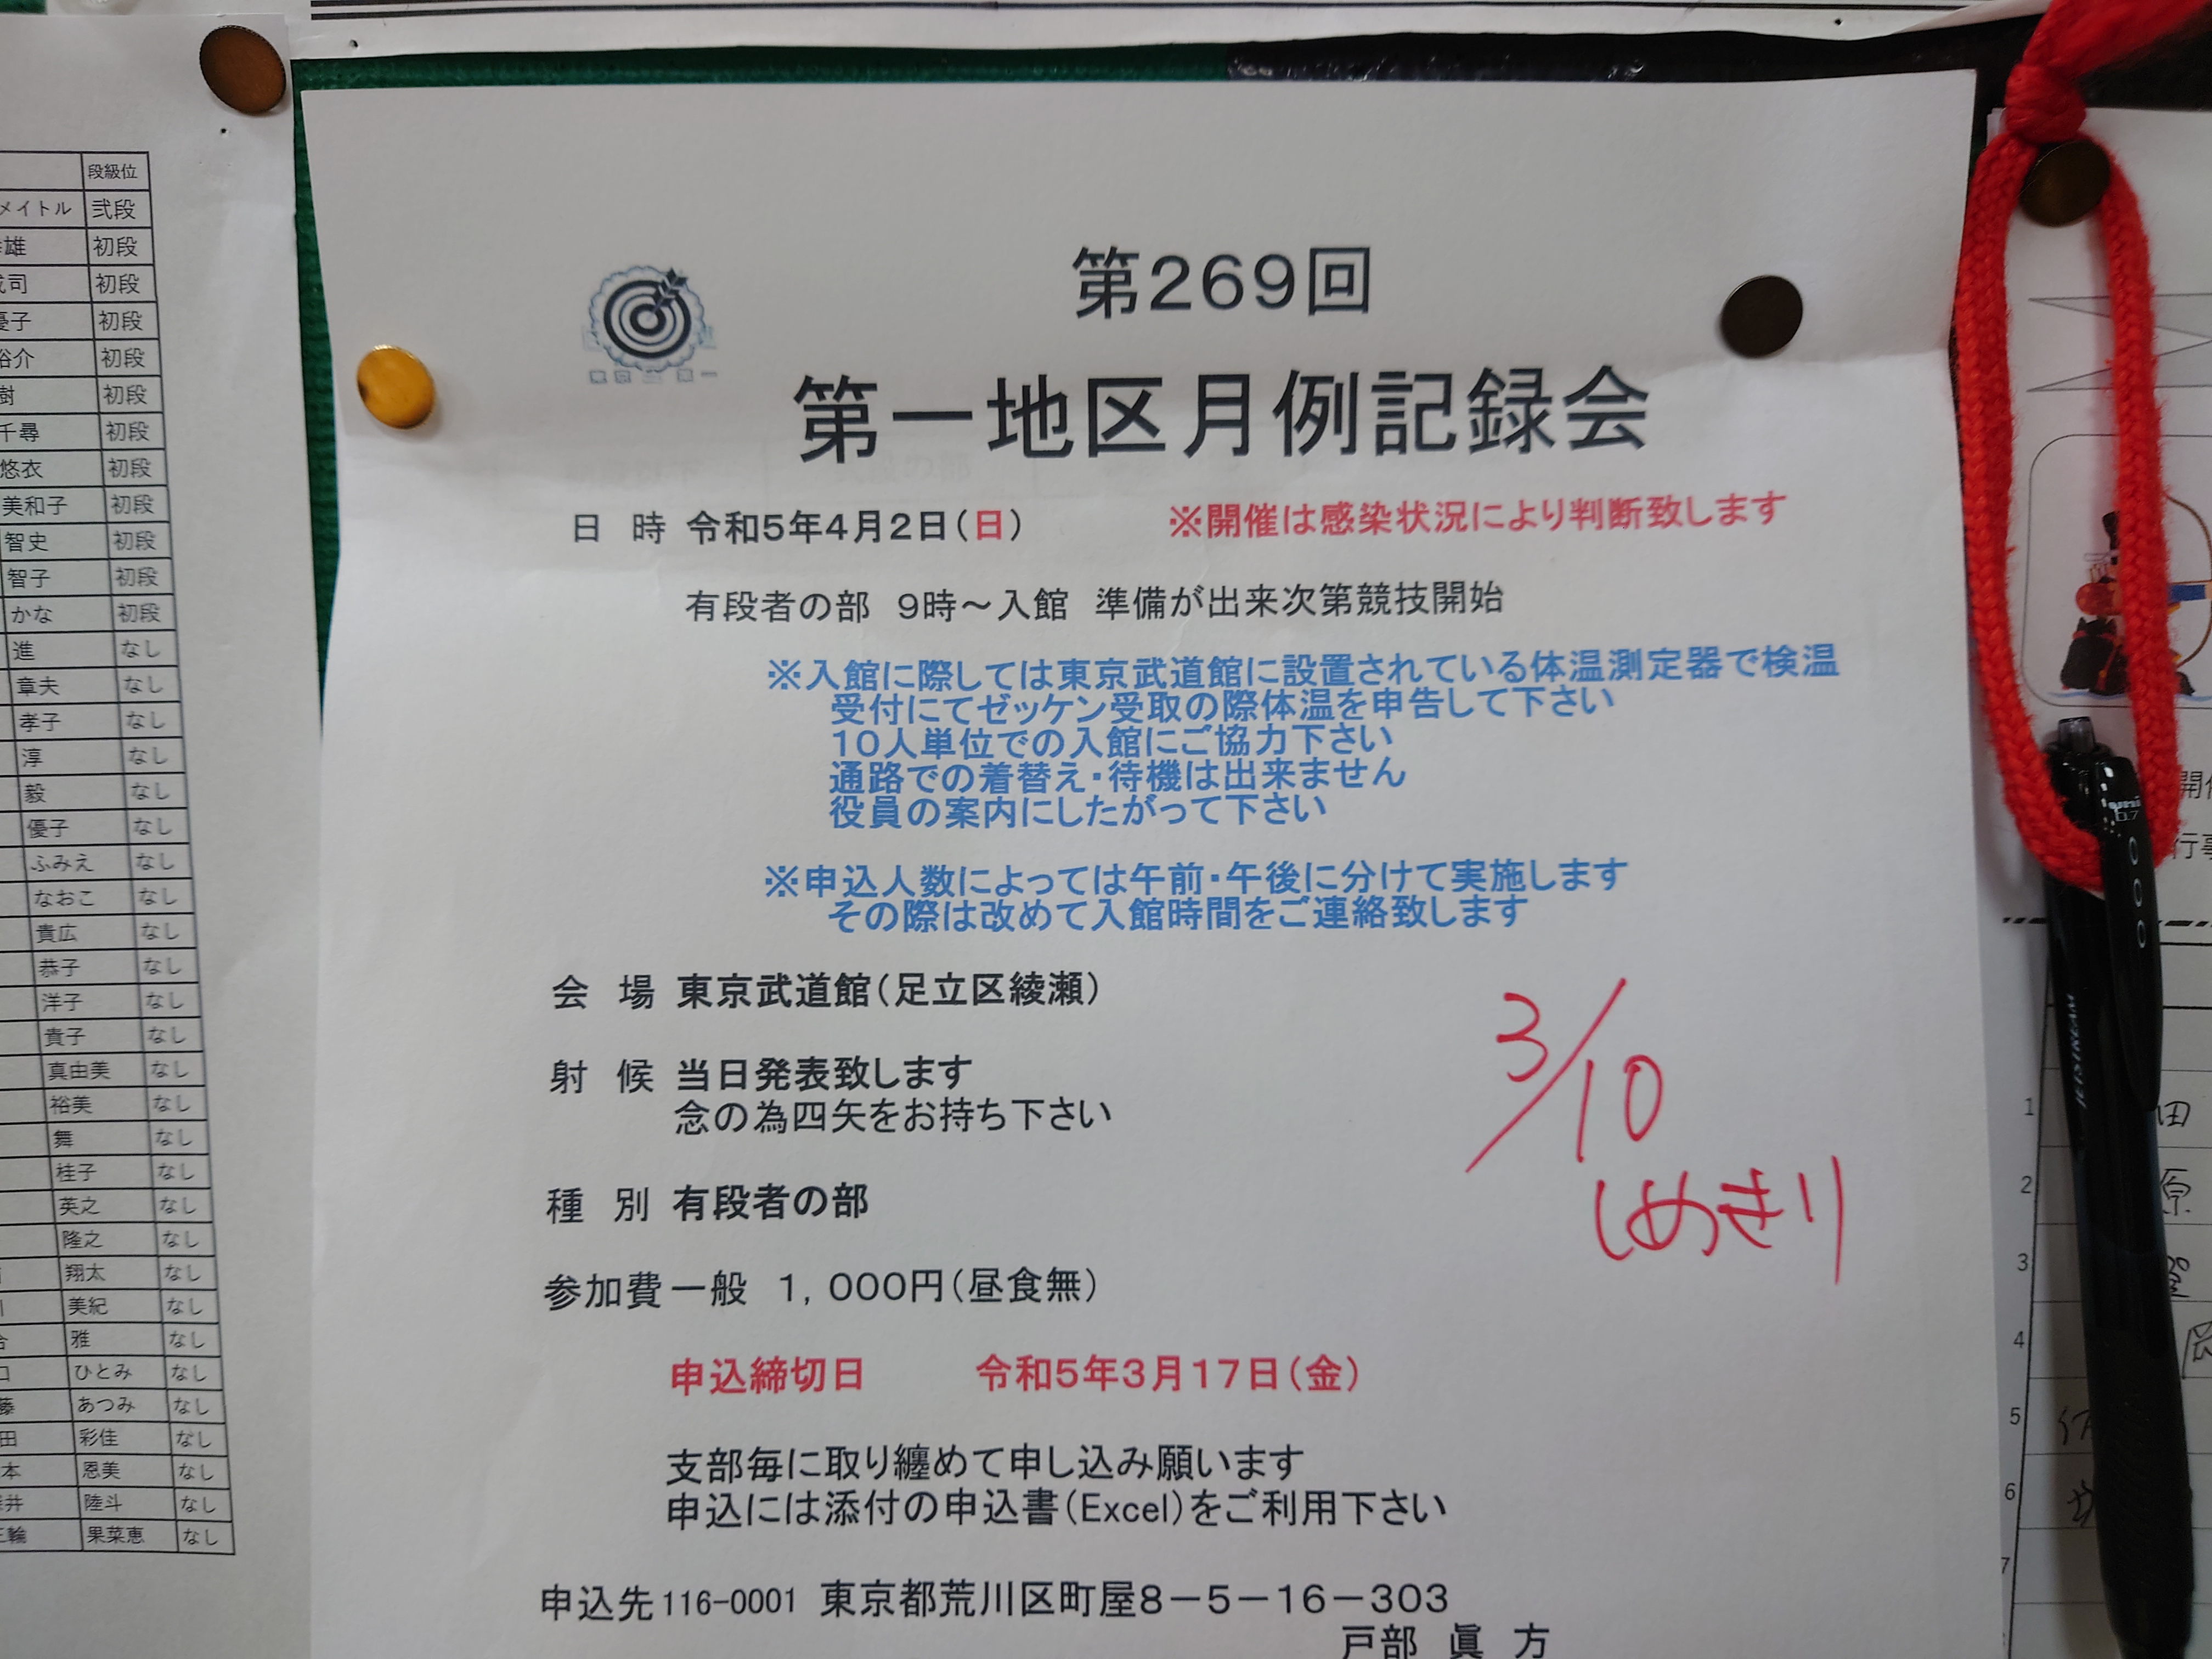 段級位
メイトル 弐段
雄 初段
司 初段
優子 初段
裕介 初段
樹 初段
千尋 初段
悠衣 初段
美和子 初段
智史 初段
智子 初段
かな 初段
進 なし
章夫 なし
孝子 なし
淳 なし
毅 なし
優子 なし
ふみえ なし
なおこ なし
貴広 なし
恭子 なし
洋子 なし
貴子 なし
真由美 なし
裕美 なし
舞 なし
桂子 なし
英之 なし
隆之 なし
翔太 なし
美紀 なし
雅 なし
ひとみ なし
藤 あつみ なし
田 彩佳 なし
本 恩美 なし
井 陸斗 なし
輪 果菜恵 なし
第269回
第一地区月例記録会
日 時 令和5年4月2日(日) ※開催は感染状況により判断致します
有段者の部 9時～入館 準備が出来次第競技開始
※入館に際しては東京武道館に設置されている体温測定器で検温
受付にてゼッケン受取の際体温を申告して下さい
10人単位での入館にご協力下さい
通路での着替え・待機は出来ません
役員の案内にしたがって下さい
※申込人数によっては午前・午後に分けて実施します
その際は改めて入館時間をご連絡致します
会 場 東京武道館(足立区綾瀬)
射 候 当日発表致します
念の為四矢をお持ち下さい
種 別 有段者の部
参加費 一般 1,000円(昼食無)
申込締切日 令和5年3月17日(金)
支部毎に取り纏めて申し込み願います
申込には添付の申込書(Excel)をご利用下さい
申込先 116-0001 東京都荒川区町屋8－5－16－303
戸部 眞 方
3/10
しめきり
uni
0.7
JETSTREAM
行事
1 田
2 原
3
4
5
6
7